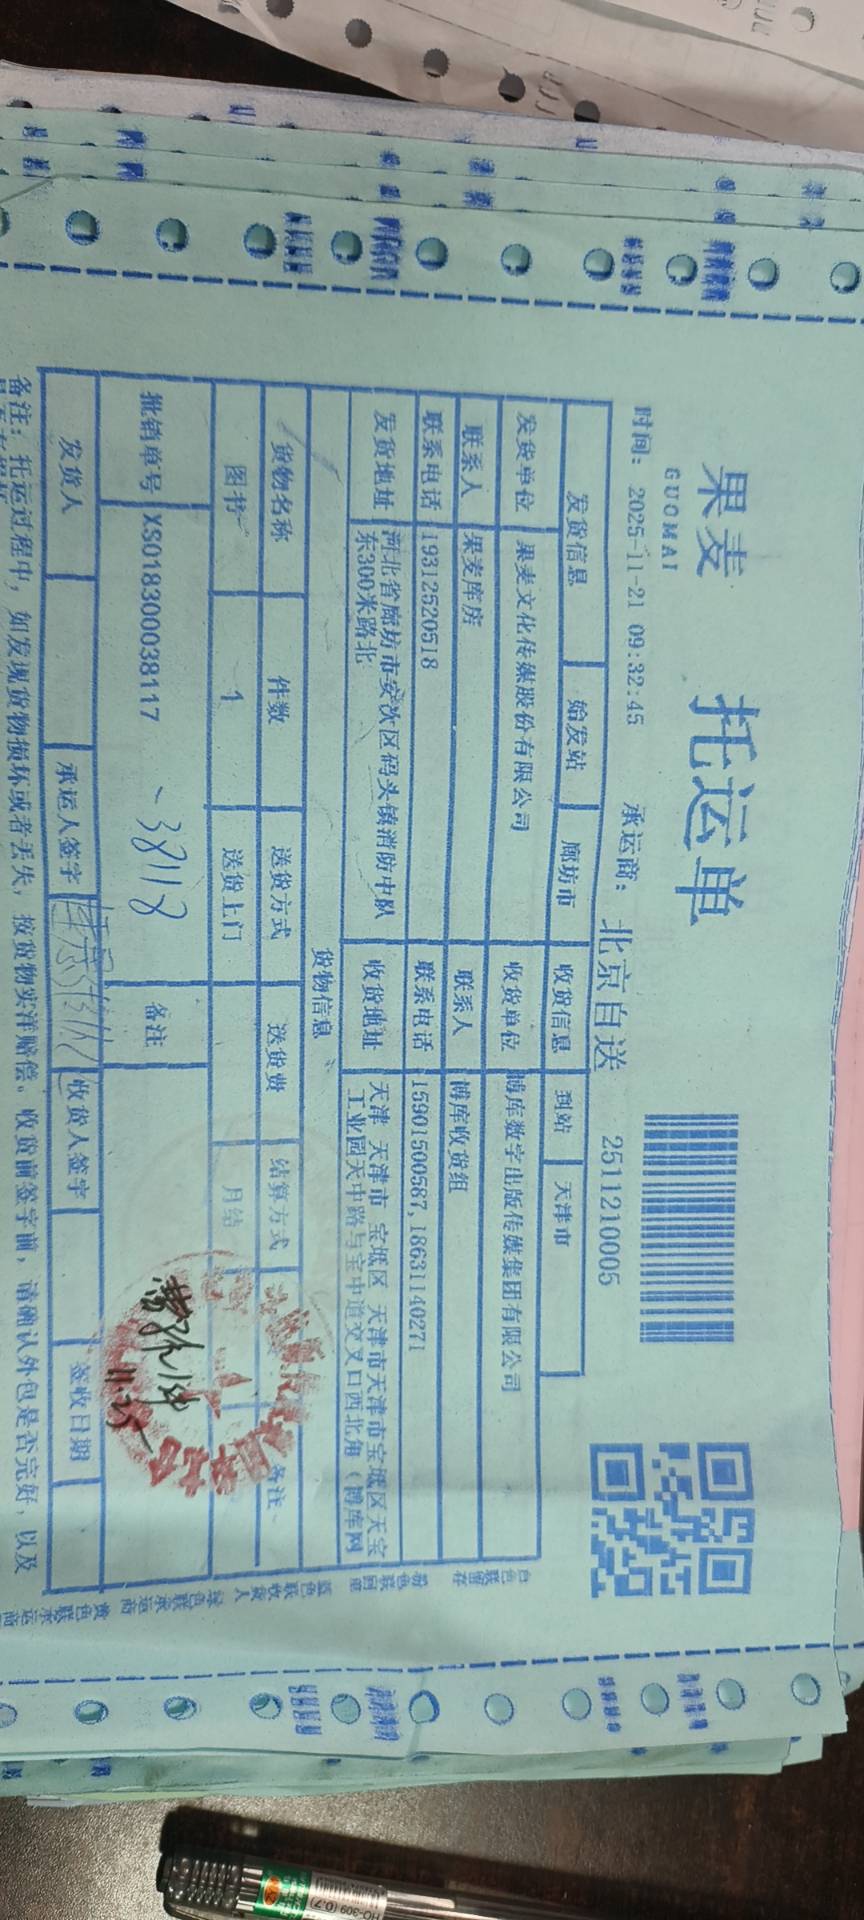 果麦
GUOMAI
托运单
2511210005
时间: 2025-11-21 09:32:45 承运商: 北京自送
发货信息 始发站 廊坊市 收货信息 到站 天津市
发货单位 果麦文化传媒股份有限公司 收货单位 博库数字出版传媒集团有限公司
联系人 果麦库房 联系人 博库收货组
联系电话 19312520518 联系电话 15901500587,18631140271
发货地址 河北省廊坊市安次区码头镇消防中队东300米路北 收货地址 天津 天津市 宝坻区 天津市天津市宝坻区天宝工业园天中路与宝中道交叉口西北角(博库网
货物信息
货物名称 件数 送货方式 送货费 结算方式 备注
图书 1 送货上门 月结
批销单号 XS018300038117 -38118 备注
11.25
发货人 承运人签字 收货人签字 签收日期
备注: 托运过程中, 如发现货物损坏或者丢失, 按货物实洋赔偿。收货前签字前, 请确认外包是否完好, 以及
白色联留存 粉色联回单 蓝色联收货人 绿色联承运商 黄色联承运商
HO-309 (0.7)